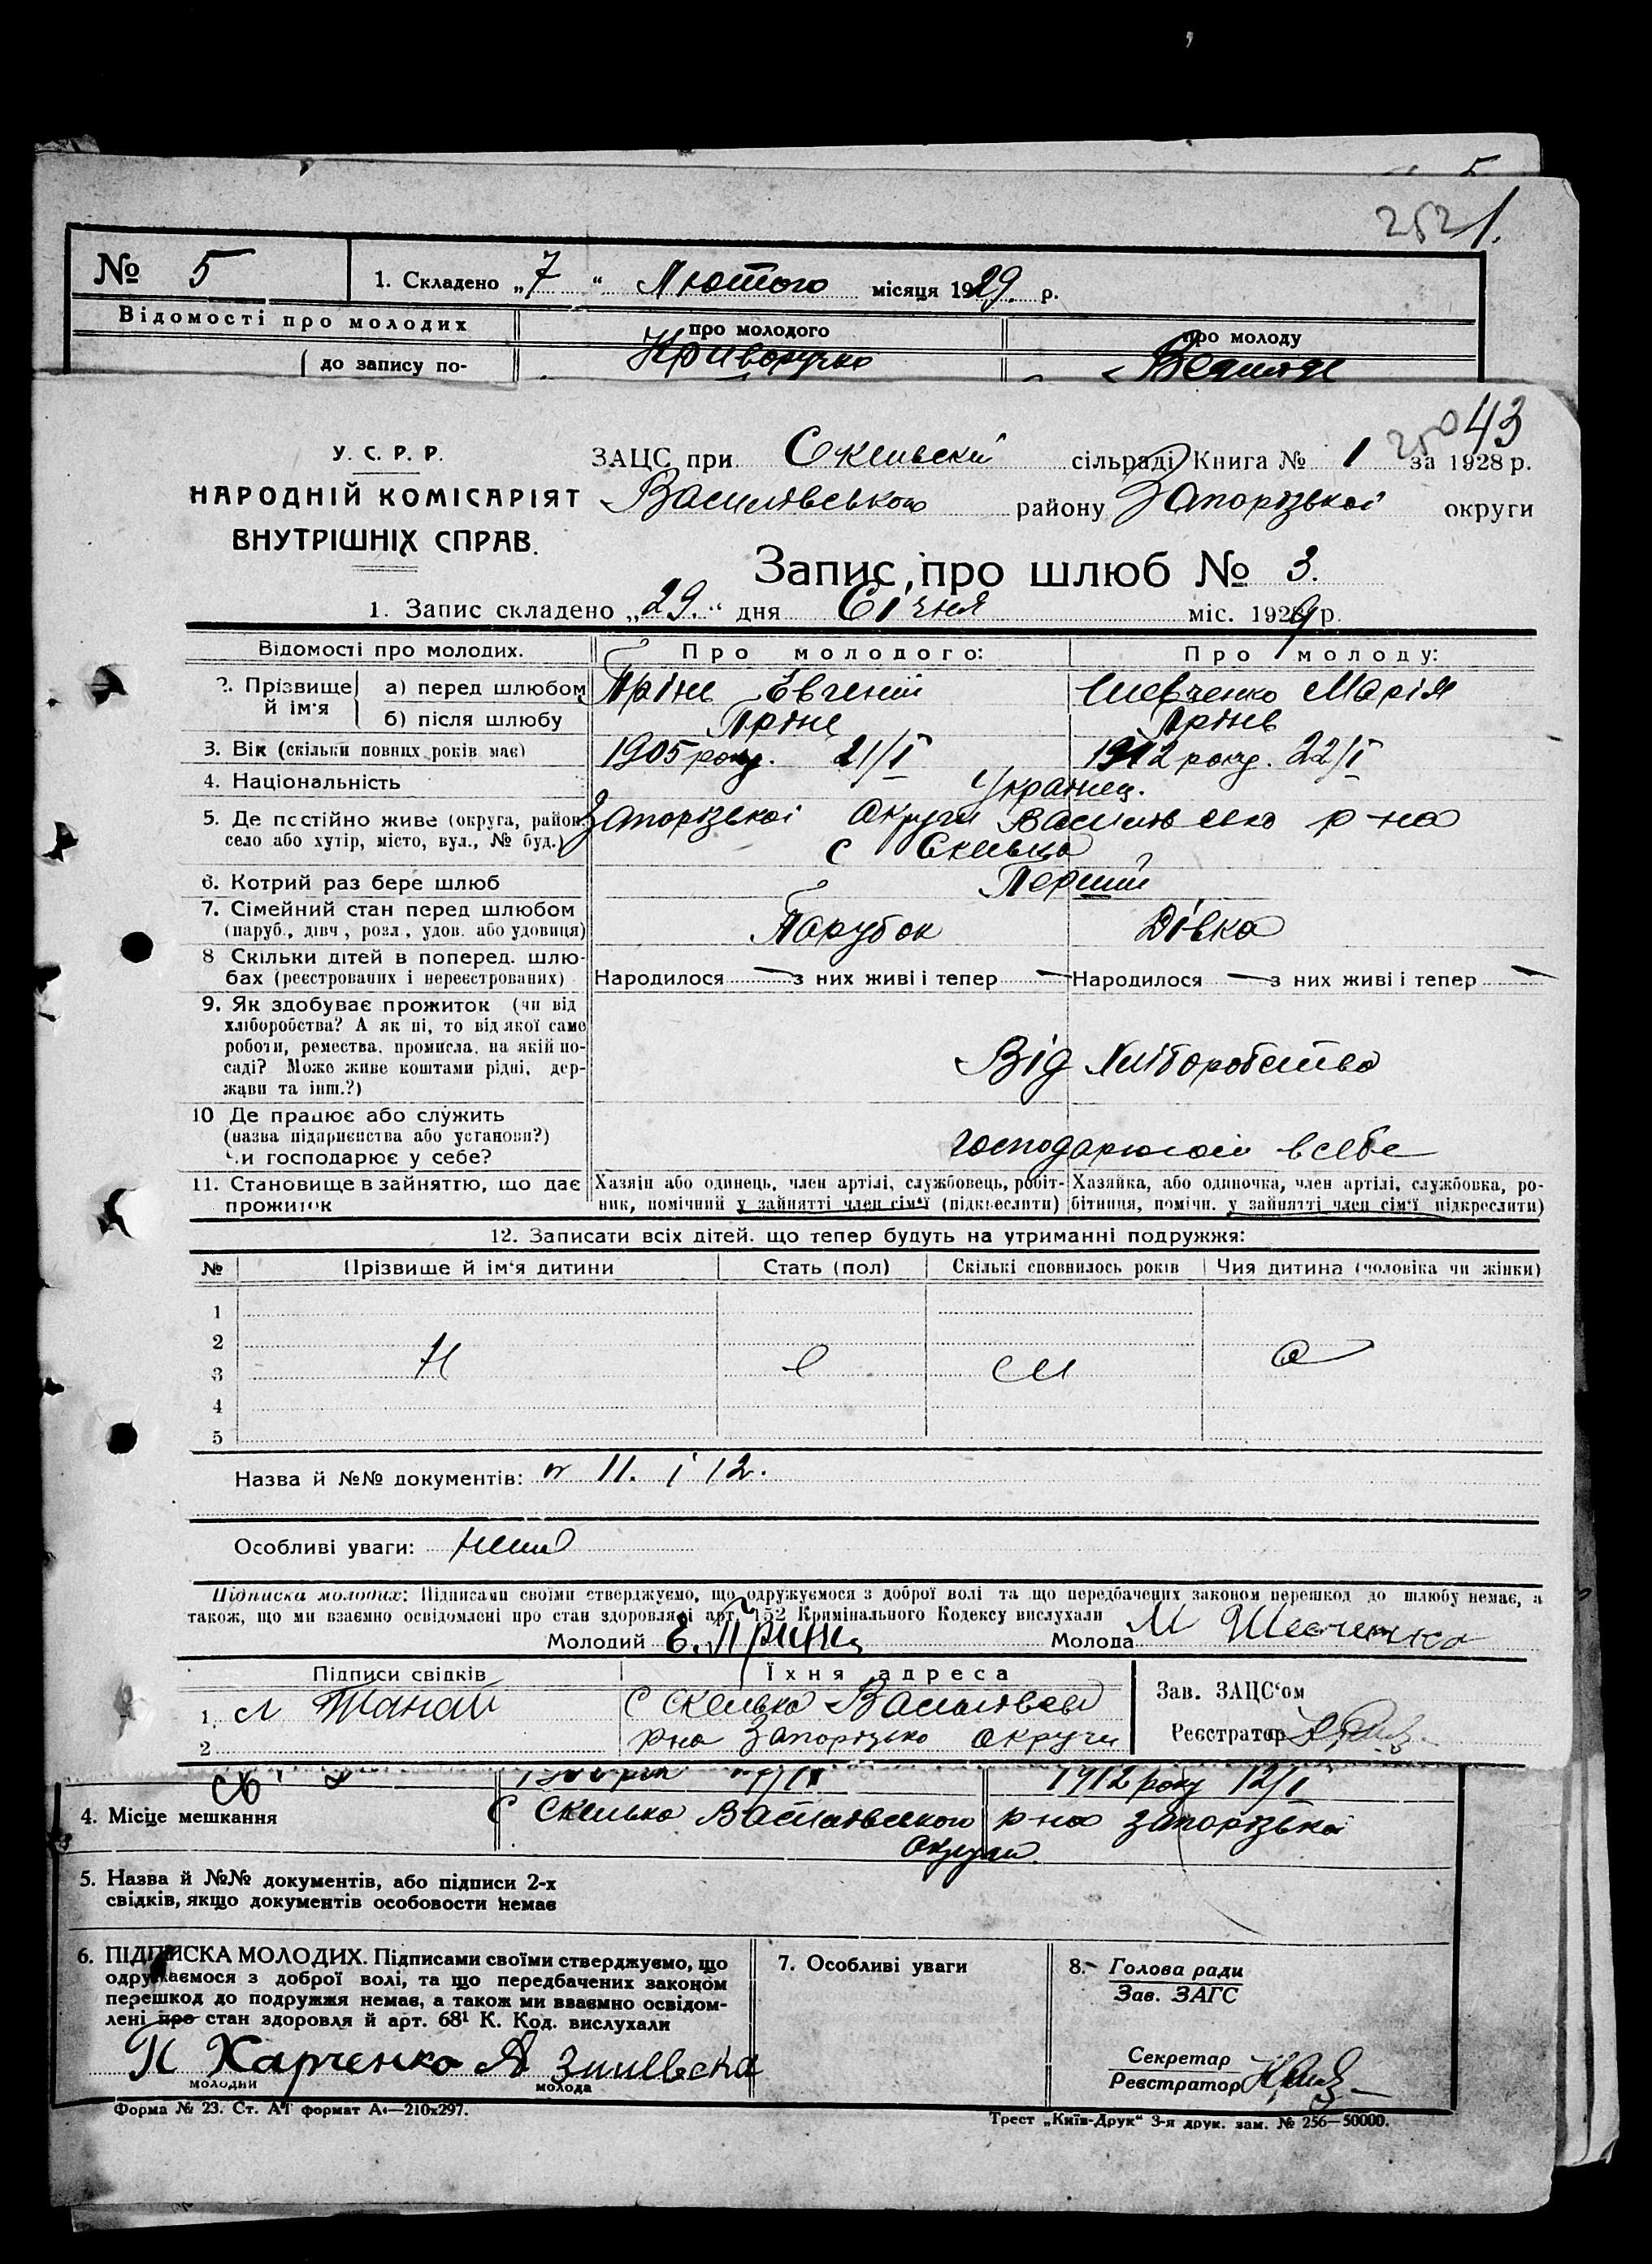 252 1.
№ 5 1. Складено „7“ Лютого місяця 1929. р.
Відомості про молодих про молодого про молоду
до запису по- Криворучко
043
У. С. Р. Р.
НАРОДНІЙ КОМІСАРІЯТ
ВНУТРІШНІХ СПРАВ.
ЗАЦС при Скельскій сільраді Книга № 1 за 1928 р.
Василівського району Запорізької округи
Запис про шлюб № 3.
1. Запис складено „29.“ дня Січня міс. 1929 р.
Відомості про молодих. Про молодого: Про молоду:
2. Прізвище й ім'я а) перед шлюбом Прінь Евгеній Шевченко Марія
б) після шлюбу Прінь Прінь
3. Вік (скільки повних років має) 1905 року. 21/I 1912 року. 22/I
4. Національність Українец.
5. Де постійно живе (округа, район, Запорізької округи Василівсько р-на
село або хутір, місто, вул., № буд.) с Скельца
6. Котрий раз бере шлюб Перший
7. Сімейний стан перед шлюбом
(паруб., дівч., розл., удов. або удовиця) Парубок Дівка
8 Скільки дітей в поперед. шлю-
бах (реєстрованих і нереєстрованих) Народилося — з них живі і тепер — Народилося — з них живі і тепер —
9. Як здобуває прожиток (чи від
хліборобства? А як ні, то від якої саме
роботи, ремества, промисла, на якій по-
саді? Може живе коштами рідні, дер-
жави та інш.?) Від Хліборобства
10 Де працює або служить
(назва підприєнства або установи?)
Чи господарює у себе? господарюють в себе
11. Становище в зайняттю, що дає Хазяін або одинець, член артілі, службовець, робіт- Хазяйка, або одиночка, член артілі, службовка, ро-
прожиток ник, помічний у зайнятті член сім'ї (підкреслити) бітниця, помічн. у зайнятті член сім'ї підкреслити)
12. Записати всіх дітей, що тепер будуть на утриманні подружжя:
№ Прізвище й ім'я дитини Стать (пол) Скількі сповнилось років Чия дитина (чоловіка чи жінки)
1
2
3 Н е м а
4
5
Назва й №№ документів: № 11. і 12.
Особливі уваги: нема
Підписка молодих: Підписами своїми стверджуємо, що одружуємося з доброї волі та що передбачених законом перешкод до шлюбу немає, а
також, що ми взаємно освідомлені про стан здоровля і арт. 152 Кримінального Кодексу вислухали
Молодий Е. Принь Молода М Шевченко
Підписи свідків Їхня адреса Зав. ЗАЦС'ом
1. Л Танай С Скелька Василівськ
2 р-на Запорізько округи Реєстратор
1912 року 12/I
4. Місце мешкання С Скелька Василівського р-на Запорізької
округи.
5. Назва й №№ документів, або підписи 2-х
свідків, якщо документів особовости немає
6. ПІДПИСКА МОЛОДИХ. Підписами своїми стверджуємо, що
одружаємося з доброї волі, та що передбачених законом
перешкод до подружжя немає, а також ми взаємно освідом-
лені про стан здоровля й арт. 68¹ К. Код. вислухали
7. Особливі уваги
8. Голова ради
Зав. ЗАГС
Секретар
Реєстратор
Н Харченко А Зміевска
молодий молода
Форма № 23. Ст. АТ формат А₄—210х297. Трест „Київ-Друк“ 3-я друк. зам. № 256—50000.